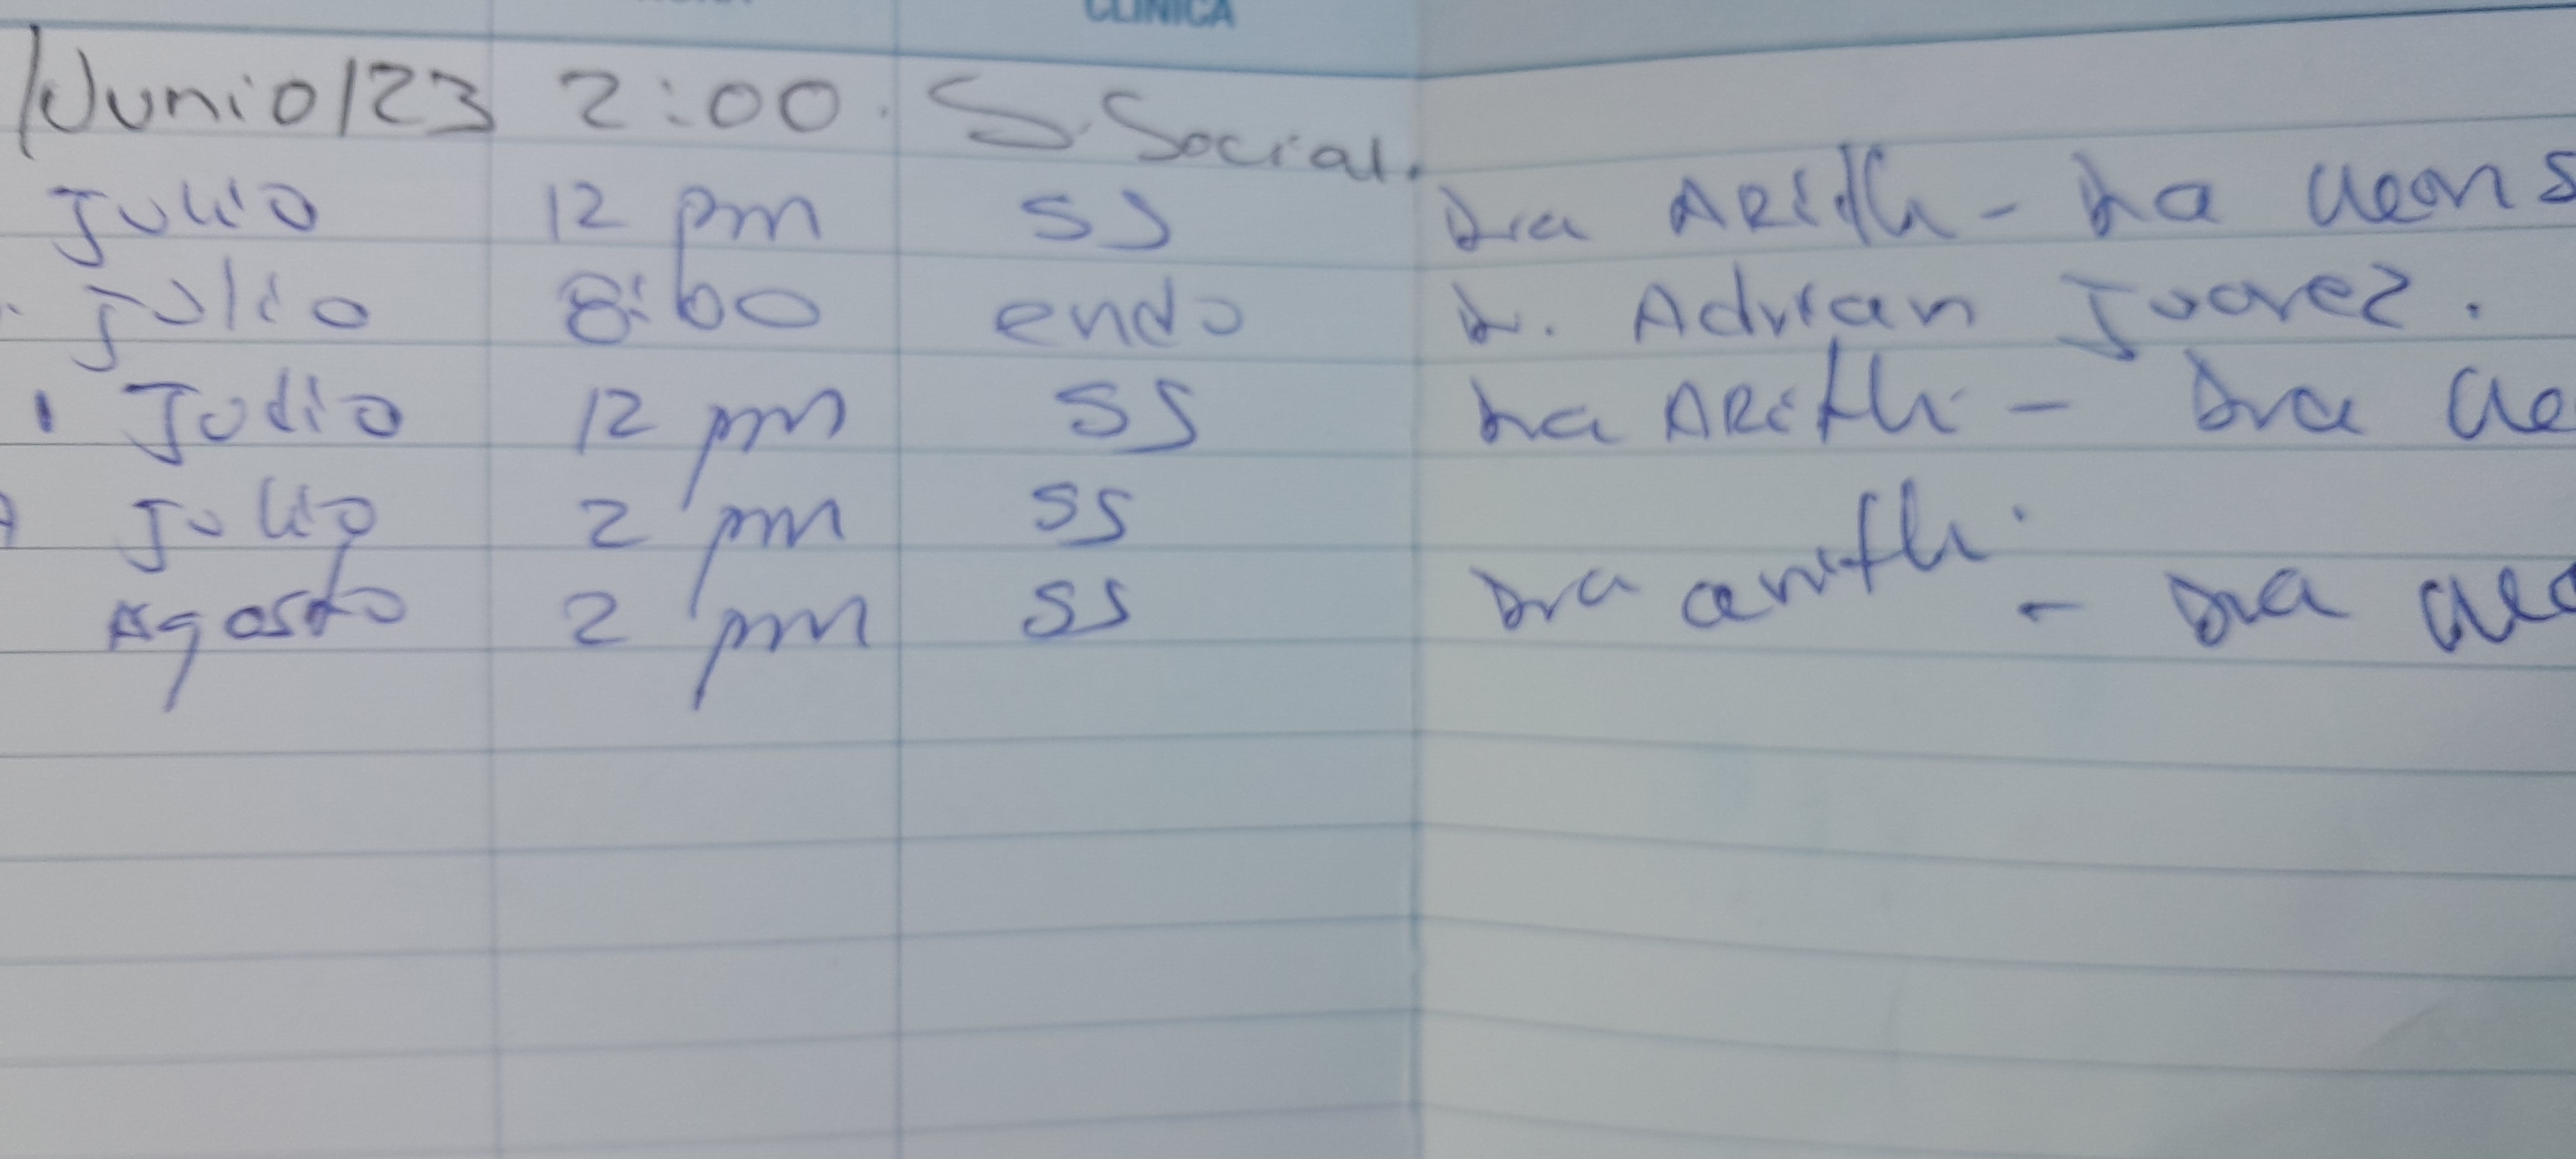 CLINICA
/Junio/23 2:00. S. Social.
Julio 12 pm SS Dra ARith - Dra
Julio 8:00 endo Dr. Adrian Juarez.
Julio 12 pm SS Dra ARith - Dra
Julio 2 pm SS
Agosto 2 pm SS Dra arith. - Dra